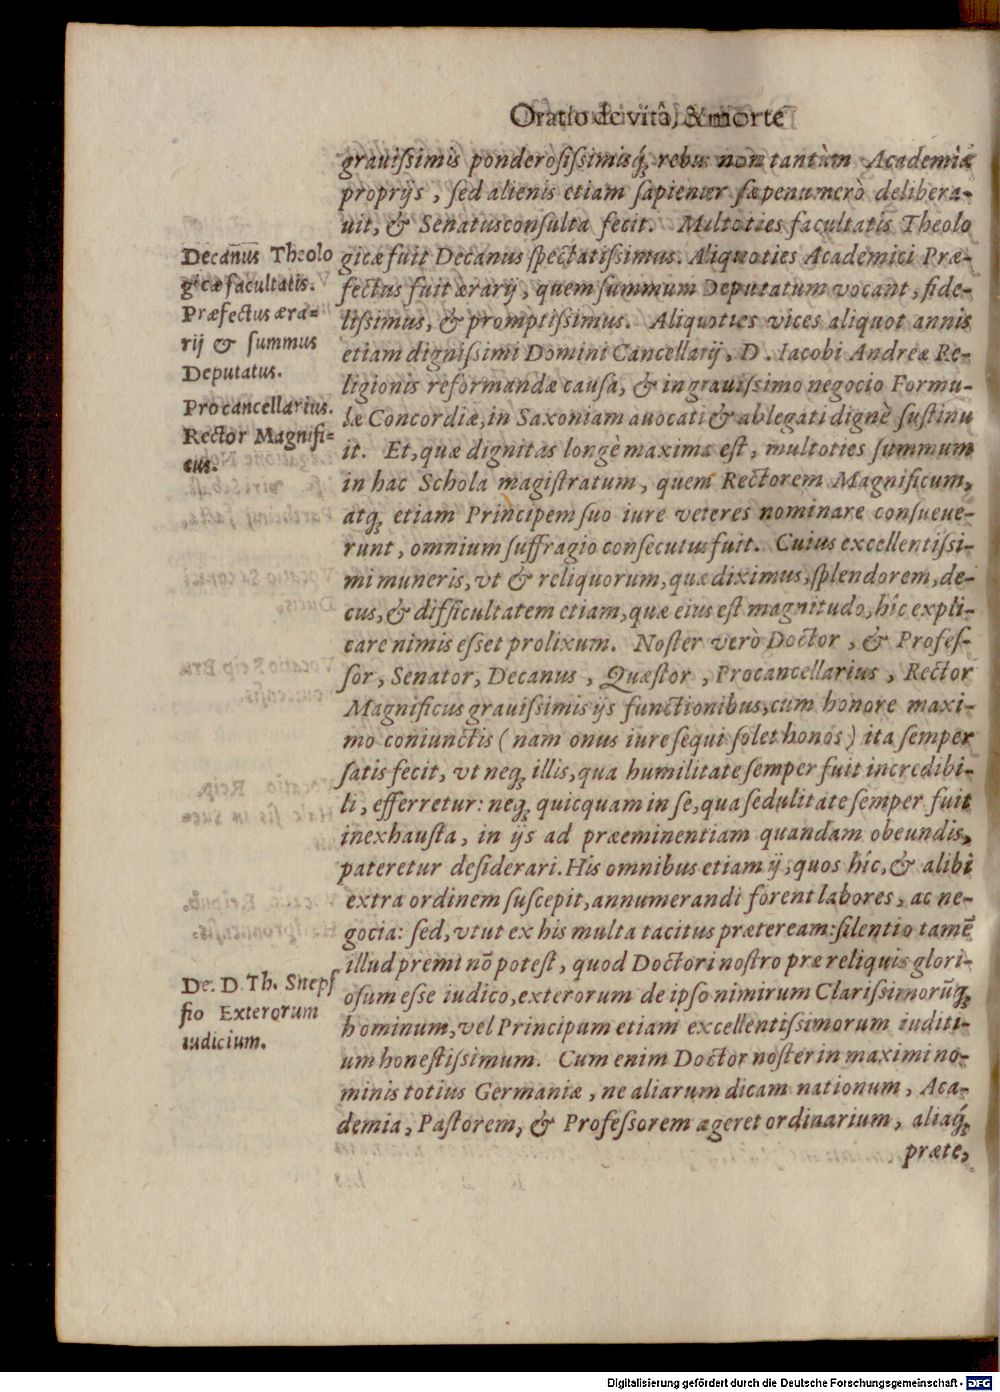 Oratio de vitâ, & morte
grauiſsimis ponderoſiſsimisq́ꝫ rebus non tantùm Academiæ
proprijs, ſed alienis etiam ſapienter ſæpenumerò delibera-
uit, & Senatusconſulta fecit. Multoties facultatis Theolo
gicæ fuit Decanus ſpectatiſsimus. Aliquoties Academici Præ-
fectus fuit ærarij, quem ſummum Deputatum vocant, fide-
liſsimus, & promptiſsimus. Aliquoties vices aliquot annis
etiam digniſsimi Domini Cancellarij, D. Iacobi Andreæ Re-
ligionis reformandæ cauſa, & in grauiſsimo negocio Formu-
læ Concordiæ, in Saxoniam auocati & ablegati dignè ſuſtinu
it. Et, quæ dignitas longè maxima eſt, multoties ſummum
in hac Schola magiſtratum, quem Rectorem Magnificum,
atqꝫ etiam Principem ſuo iure veteres nominare conſueue-
runt, omnium ſuffragio conſecutus fuit. Cuius excellentiſsi-
mi muneris, vt & reliquorum, quæ diximus, ſplendorem, de-
cus, & difficultatem etiam, quæ eius eſt magnitudo, hîc expli-
care nimis eſſet prolixum. Noſter verò Doctor, & Profeſ-
ſor, Senator, Decanus, Quæſtor, Procancellarius, Rector
Magnificus grauiſsimis ijs functionibus, cum honore maxi-
mo coniunctis (nam onus iure ſequi ſolet honos) ita ſemper
ſatis fecit, vt neqꝫ illis, qua humilitate ſemper fuit incredibi-
li, efferretur: neqꝫ quicquam in ſe, qua ſedulitate ſemper fuit
inexhauſta, in ijs ad præeminentiam quandam obeundis,
pateretur deſiderari. His omnibus etiam ij, quos hîc, & alibi
extra ordinem ſuſcepit, annumerandi forent labores, ac ne-
gocia: ſed, vt ut ex his multa tacitus præteream: ſilentio tamẽ
illud premi nõ poteſt, quod Doctori noſtro præ reliquis glori-
oſum eſſe iudico, exterorum de ipſo nimirum Clariſsimorũqꝫ
hominum, vel Principum etiam excellentiſsimorum iuditi-
um honeſtiſsimum. Cum enim Doctor noſter in maximi no-
minis totius Germaniæ, ne aliarum dicam nationum, Aca-
demia, Paſtorem, & Profeſsorem ageret ordinarium, aliaq́ꝫ
præte,
Decanus Theolo
gicæ facultatis.
Præfectus æra-
rij & ſummus
Deputatus.
Procancellarius.
Rector Magnifi-
cus.
De. D. Th. Snepf
fio Exterorum
iudicium.
Digitalisierung gefördert durch die Deutsche Forschungsgemeinschaft - DFG